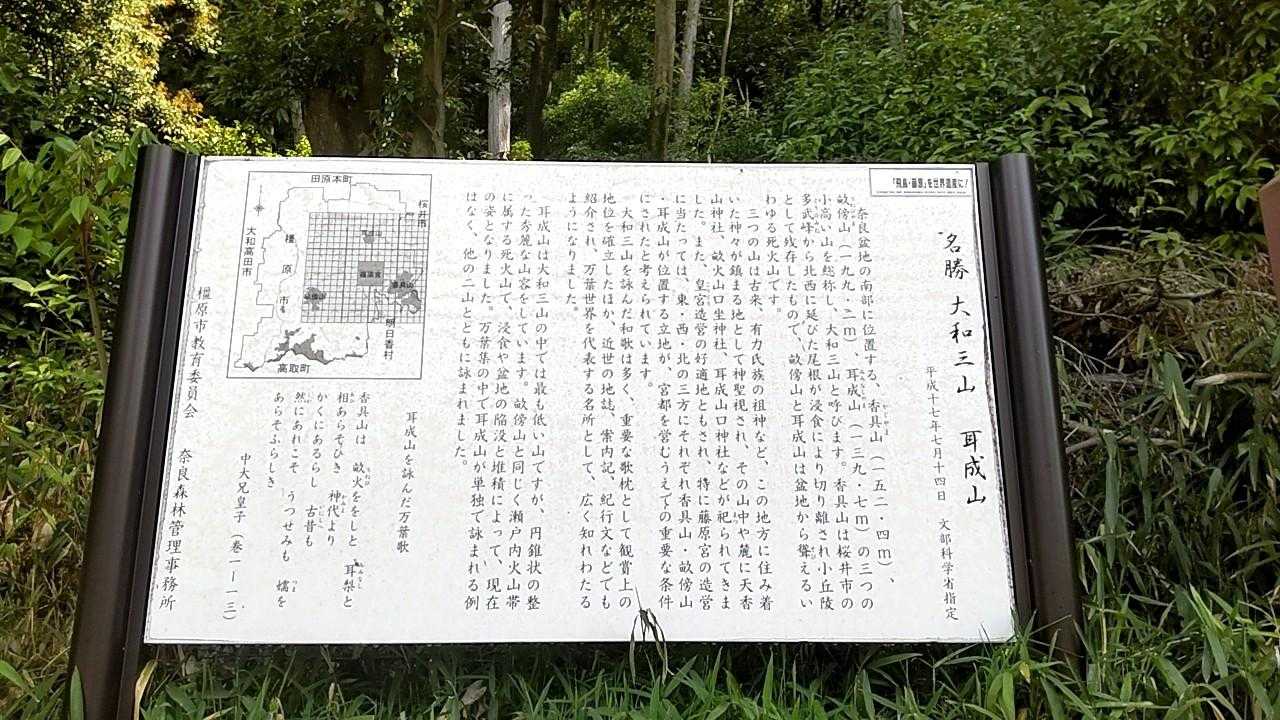 「飛鳥・藤原」を世界遺産に!
名勝 大和三山 耳成山
平成十七年七月十四日 文部科学省指定
奈良盆地の南部に位置する、香具山(一五二・四m)、
畝傍山(一九九・二m)、耳成山(一三九・七m)の三つの
小高い山を総称し、大和三山と呼びます。香具山は桜井市の
多武峰から北西に延びた尾根が浸食により切り離され小丘陵
として残存したもので、畝傍山と耳成山は盆地から聳えるい
わゆる死火山です。
三つの山は古来、有力氏族の祖神など、この地方に住み着
いた神々が鎮まる地として神聖視され、その山中や麓に天香
山神社、畝火山口坐神社、耳成山口神社などが祀られてきま
した。また、皇宮造営の好適地ともされ、特に藤原宮の造営
に当たっては、東・西・北の三方にそれぞれ香具山・畝傍山
・耳成山が位置する立地が、宮都を営むうえでの重要な条件
にされたと考えられています。
大和三山を詠んだ和歌は多く、重要な歌枕として観賞上の
地位を確立したほか、近世の地誌、案内記、紀行文などでも
紹介され、万葉世界を代表する名所として、広く知れわたる
ようになりました。
耳成山は大和三山の中では最も低い山ですが、円錐状の整
った秀麗な山容をしています。畝傍山と同じく瀬戸内火山帯
に属する死火山で、浸食や盆地の陥没と堆積によって、現在
の姿となりました。万葉集の中で耳成山が単独で詠まれる例
はなく、他の二山とともに詠まれました。
耳成山を詠んだ万葉歌
香具山は 畝火ををしと 耳梨と
相あらそひき 神代より
かくにあるらし 古昔も
然にあれこそ うつせみも 嬬を
あらそふらしき
中大兄皇子(巻一―一三)
田原本町
桜井市
大和高田市
橿原市
藤原宮
香具山
明日香村
高取町
橿原市教育委員会 奈良森林管理事務所